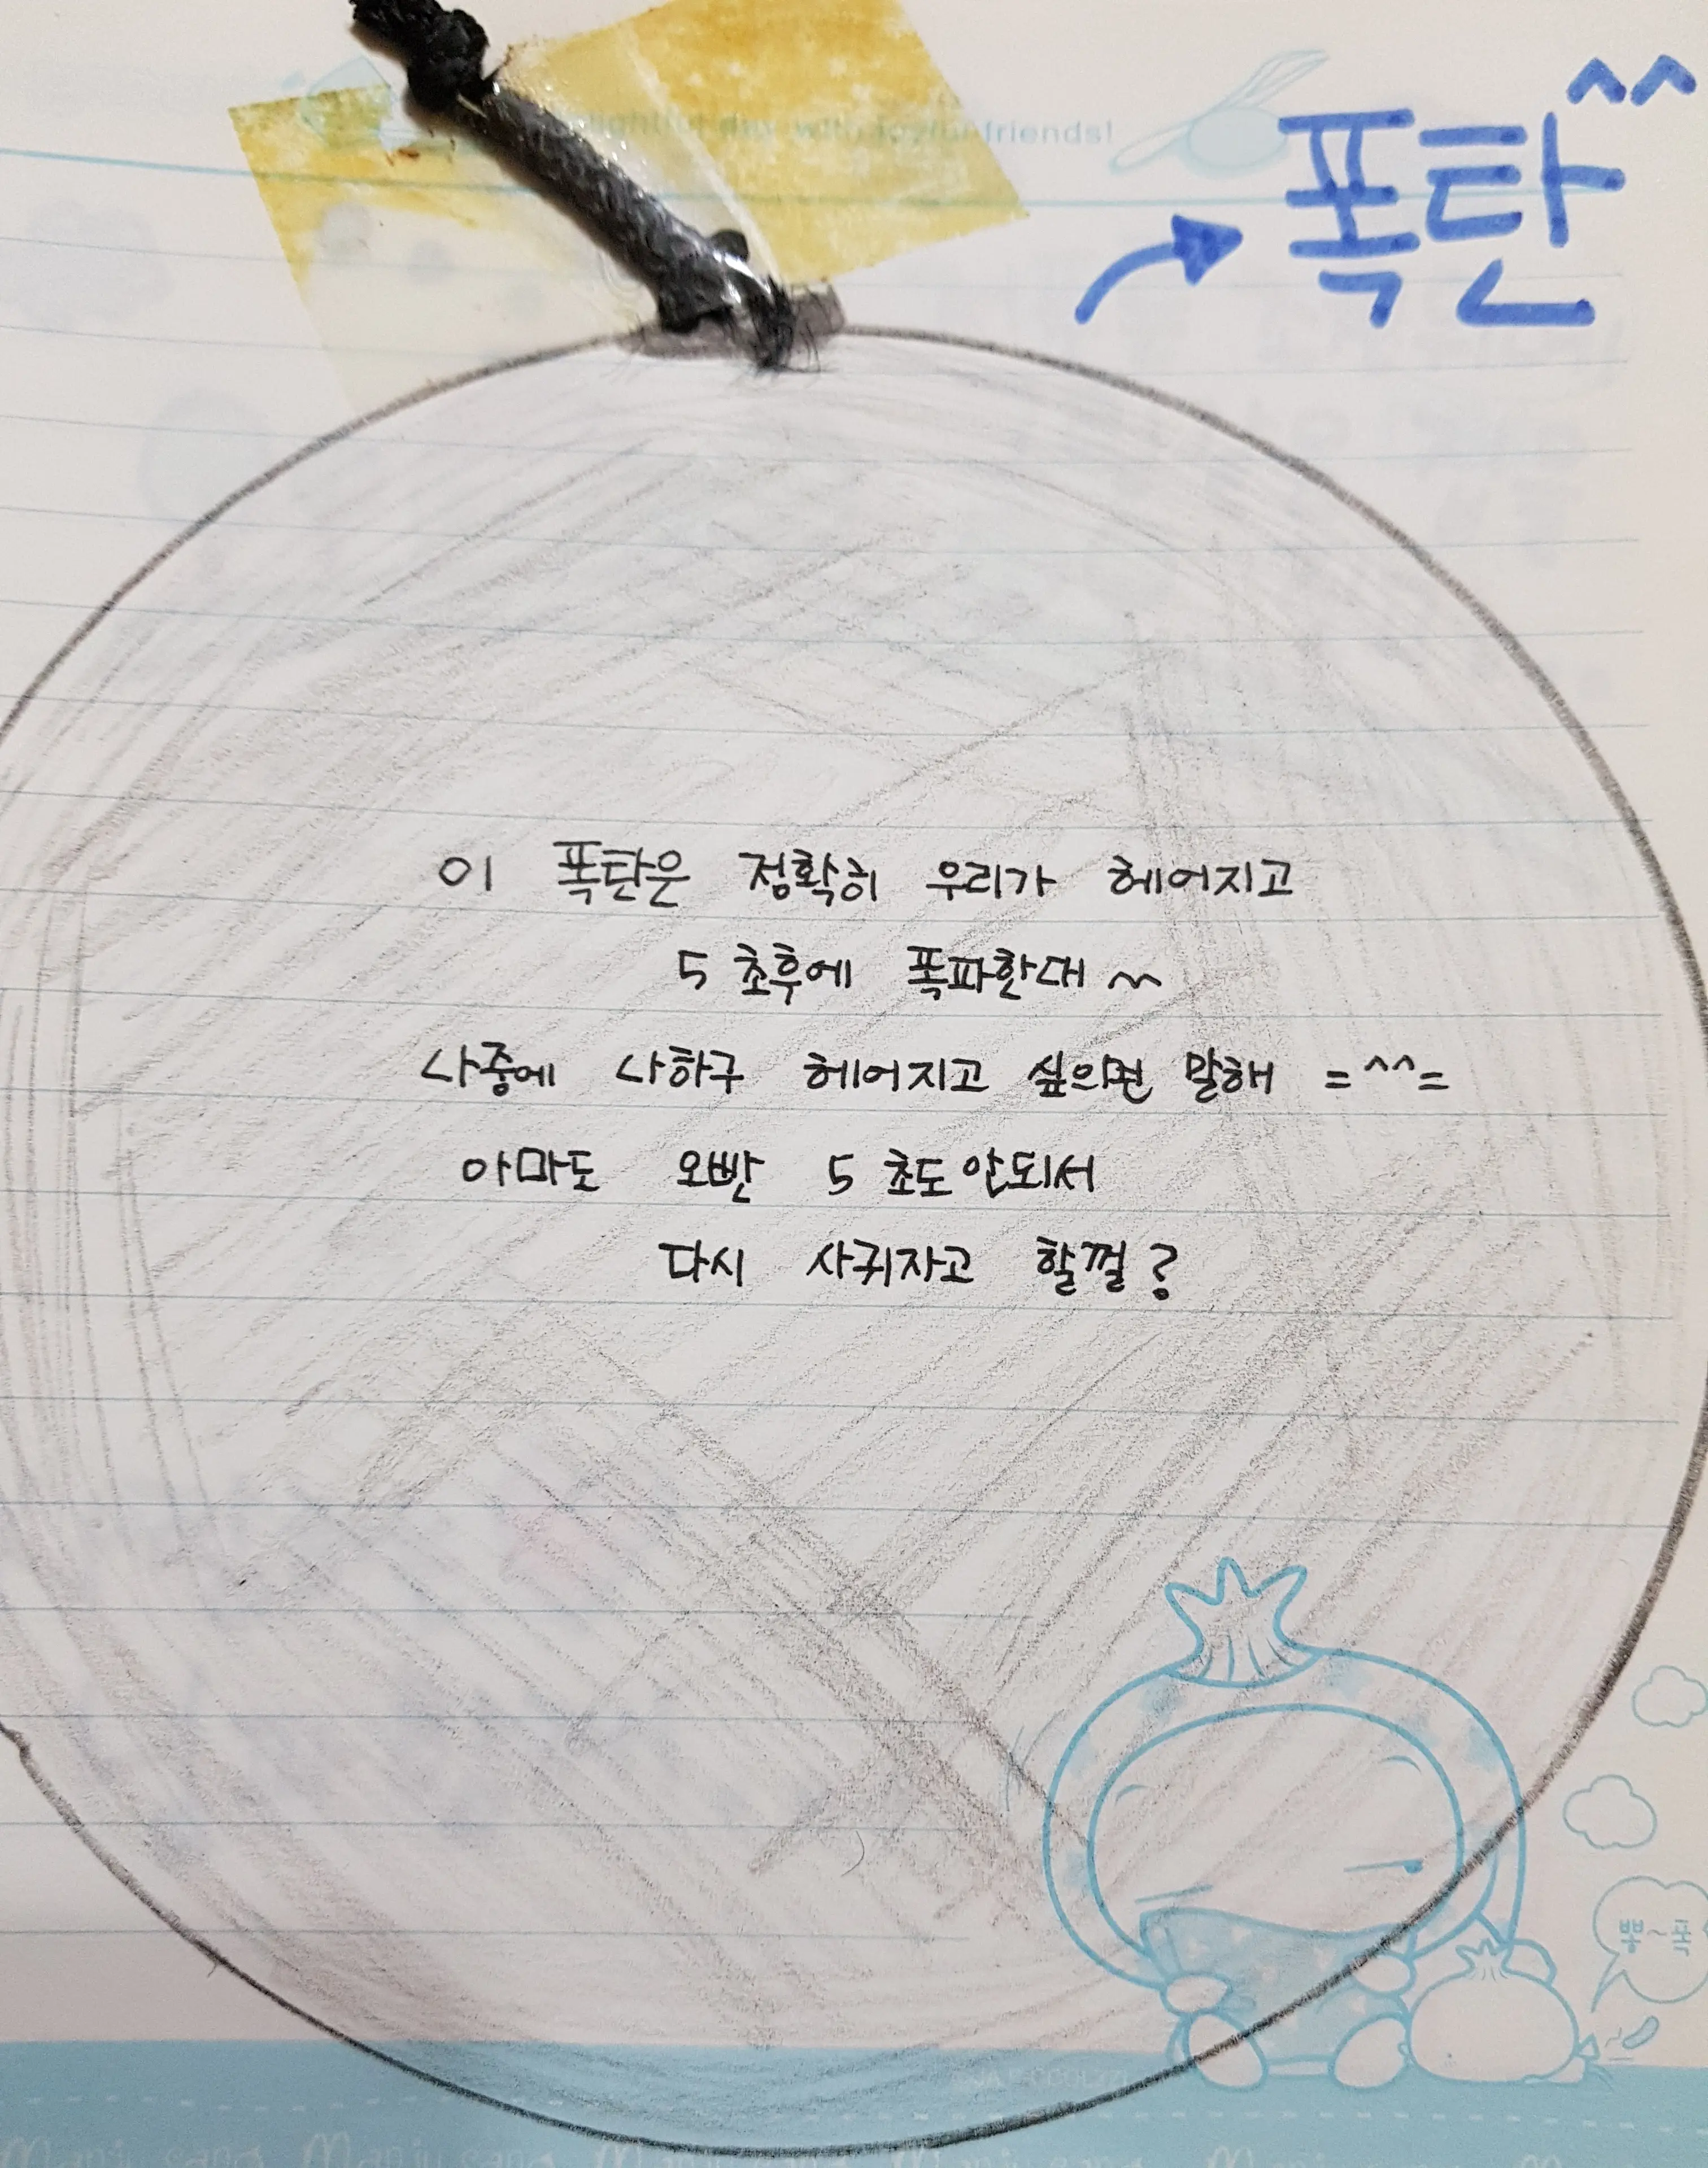 with joyful friends!
폭탄^^
이 폭탄은 정확히 우리가 헤어지고
5초후에 폭파한대 ~
나중에 나하구 헤어지고 싶으면 말해 =^^=
아마도 오빤 5초도 안되서
다시 사귀자고 할껄?
뿡~폭
Manju sang Manju sang